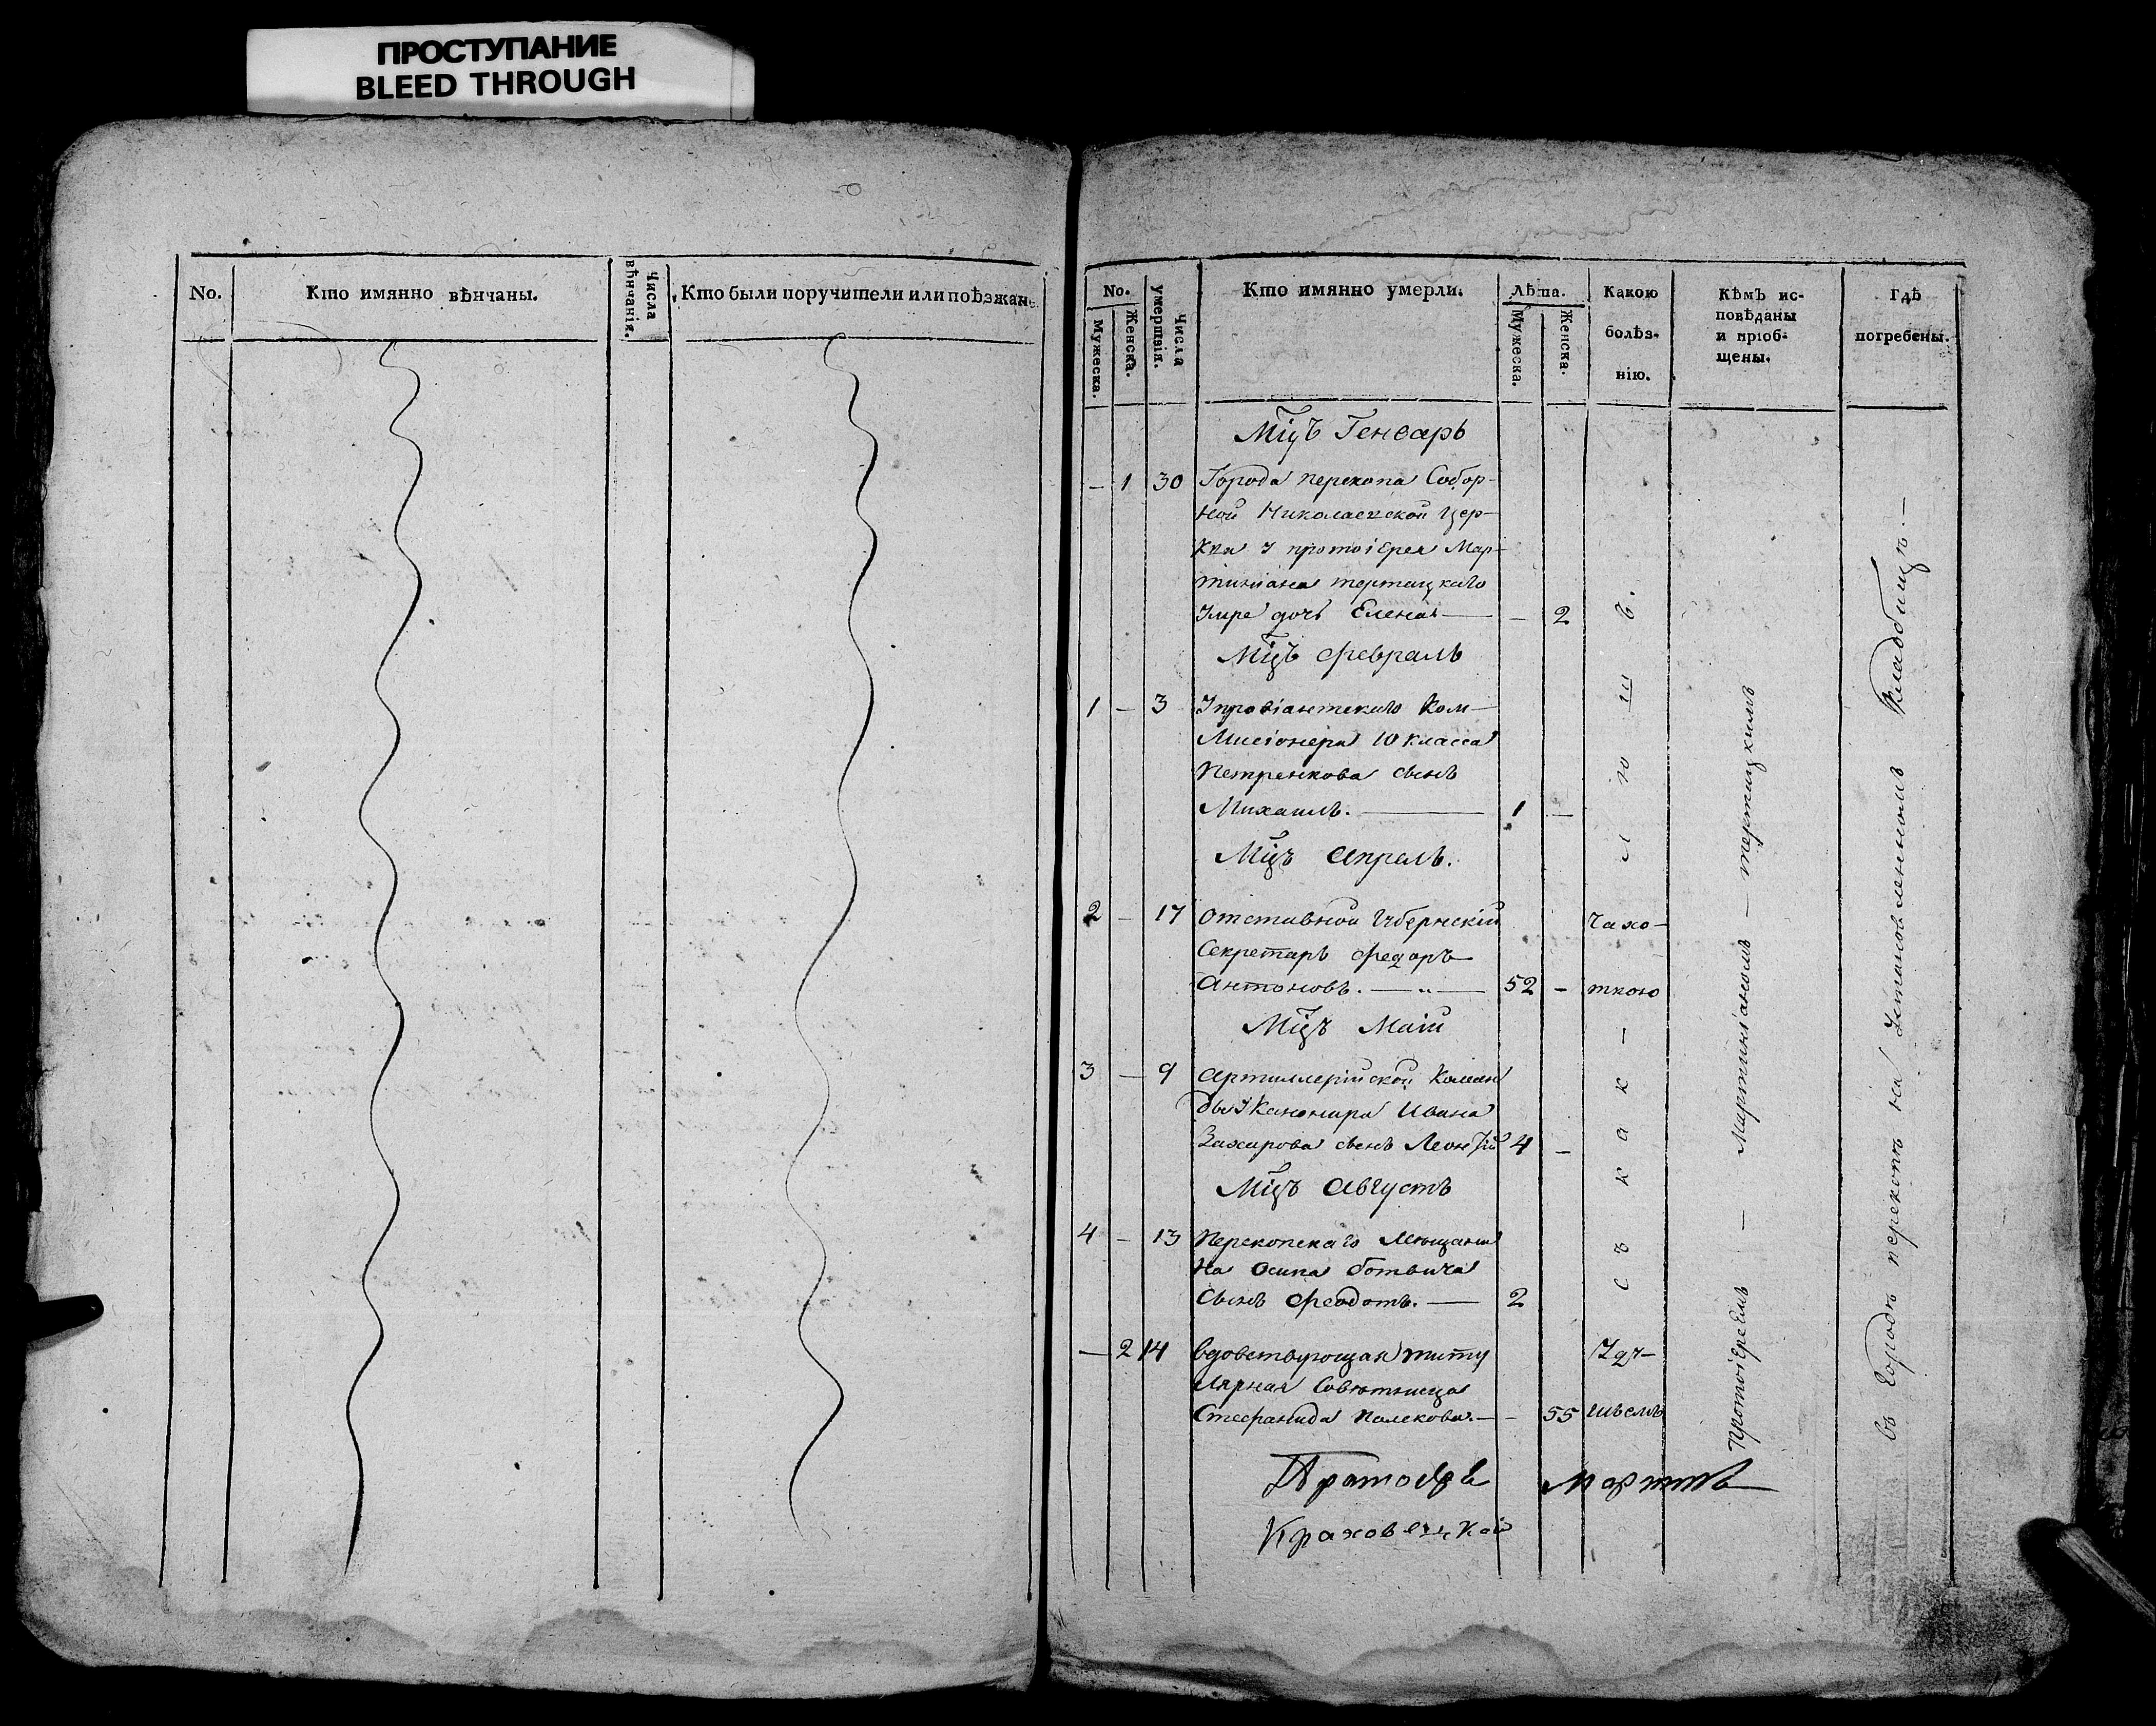 ПРОСТУПАНИЕ
BLEED THROUGH
No.
Кто имянно вѣнчаны.
Числа вѣнчанія.
Кто были поручители или поѣзжане
No.
Мужеска.
Женска.
Числа умертвія.
Кто имянно умерли.
Лѣта.
Мужеска.
Женска.
Какою
болѣз-
нію.
Кѣмъ ис-
повѣданы
и пріоб-
щены.
Гдѣ
погребены.
Мцъ Генварь
— 1 30 Города перекопа Собор-
ной Николаевской Цер-
Ква У протоіерея Мар-
тиніана тертицкаго
Умре дочь Елена — — 2
Мцъ февраль
1 — 3 У провіантскаго Ком-
Мисіонера 10 класса
Петренкова сынъ
Михаилъ. — 1 —
Мцъ Апрель.
2 — 17 Отставной Губернскій Чахо-
Секретарь Федоръ
Антоновъ. — „ — 52 — ткою
Мцъ Маій
3 — 9 Артиллерійской Коман
ды У Канонира Ивана
Захарова сынъ Леонтій 4 —
Мцъ Августъ
4 — 13 Перекопскаго Мещани
На Осипа Ботвича
Сынъ Феодотъ. — 2
— 2 14 Вдовствующая титу
Лярная Совютница
Стефанида Полекова. — — 55
Протоіереемъ — Мартиніаномъ — тертицкимъ
въ Городѣ перекопѣ на Установленномъ Кладбищѣ. —
Мартинъ